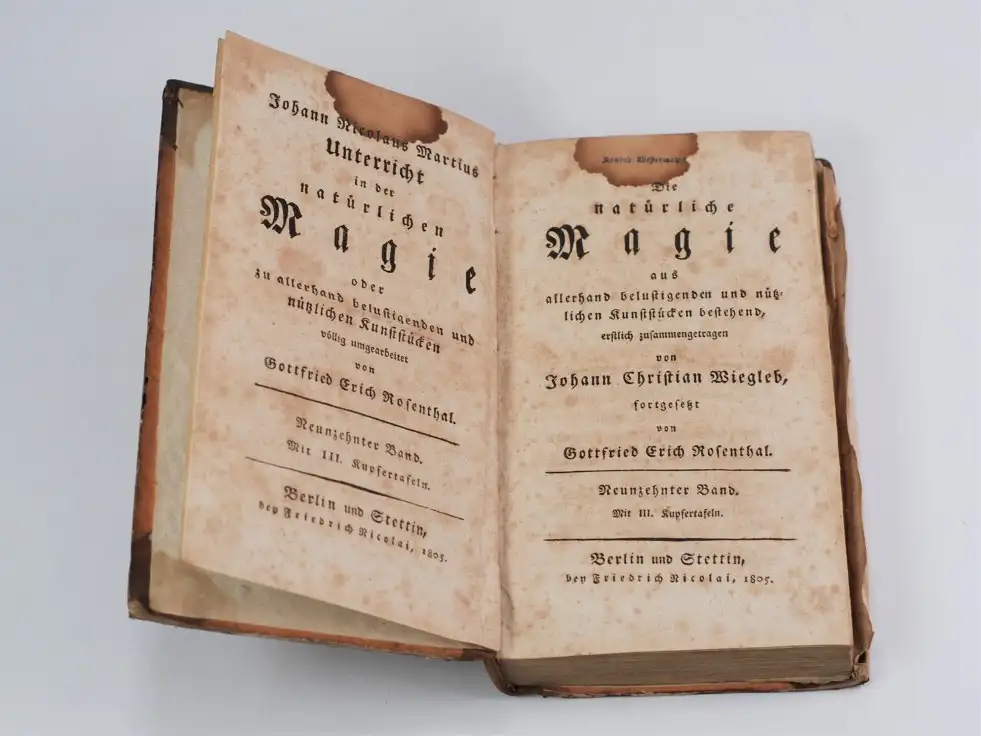 Johann Nicolaus Martius
Unterricht
in der
natürlichen
Magie
oder
zu allerhand belustigenden und
nützlichen Kunststücken
völlig umgearbeitet
von
Gottfried Erich Rosenthal.
Neunzehnter Band.
Mit III. Kupfertafeln.
Berlin und Stettin,
bey Friedrich Nicolai, 1805.
Die
natürliche
Magie
aus
allerhand belustigenden und nütz-
lichen Kunststücken bestehend,
erstlich zusammengetragen
von
Johann Christian Wiegleb,
fortgesetzt
von
Gottfried Erich Rosenthal.
Neunzehnter Band.
Mit III. Kupfertafeln.
Berlin und Stettin,
bey Friedrich Nicolai, 1805.